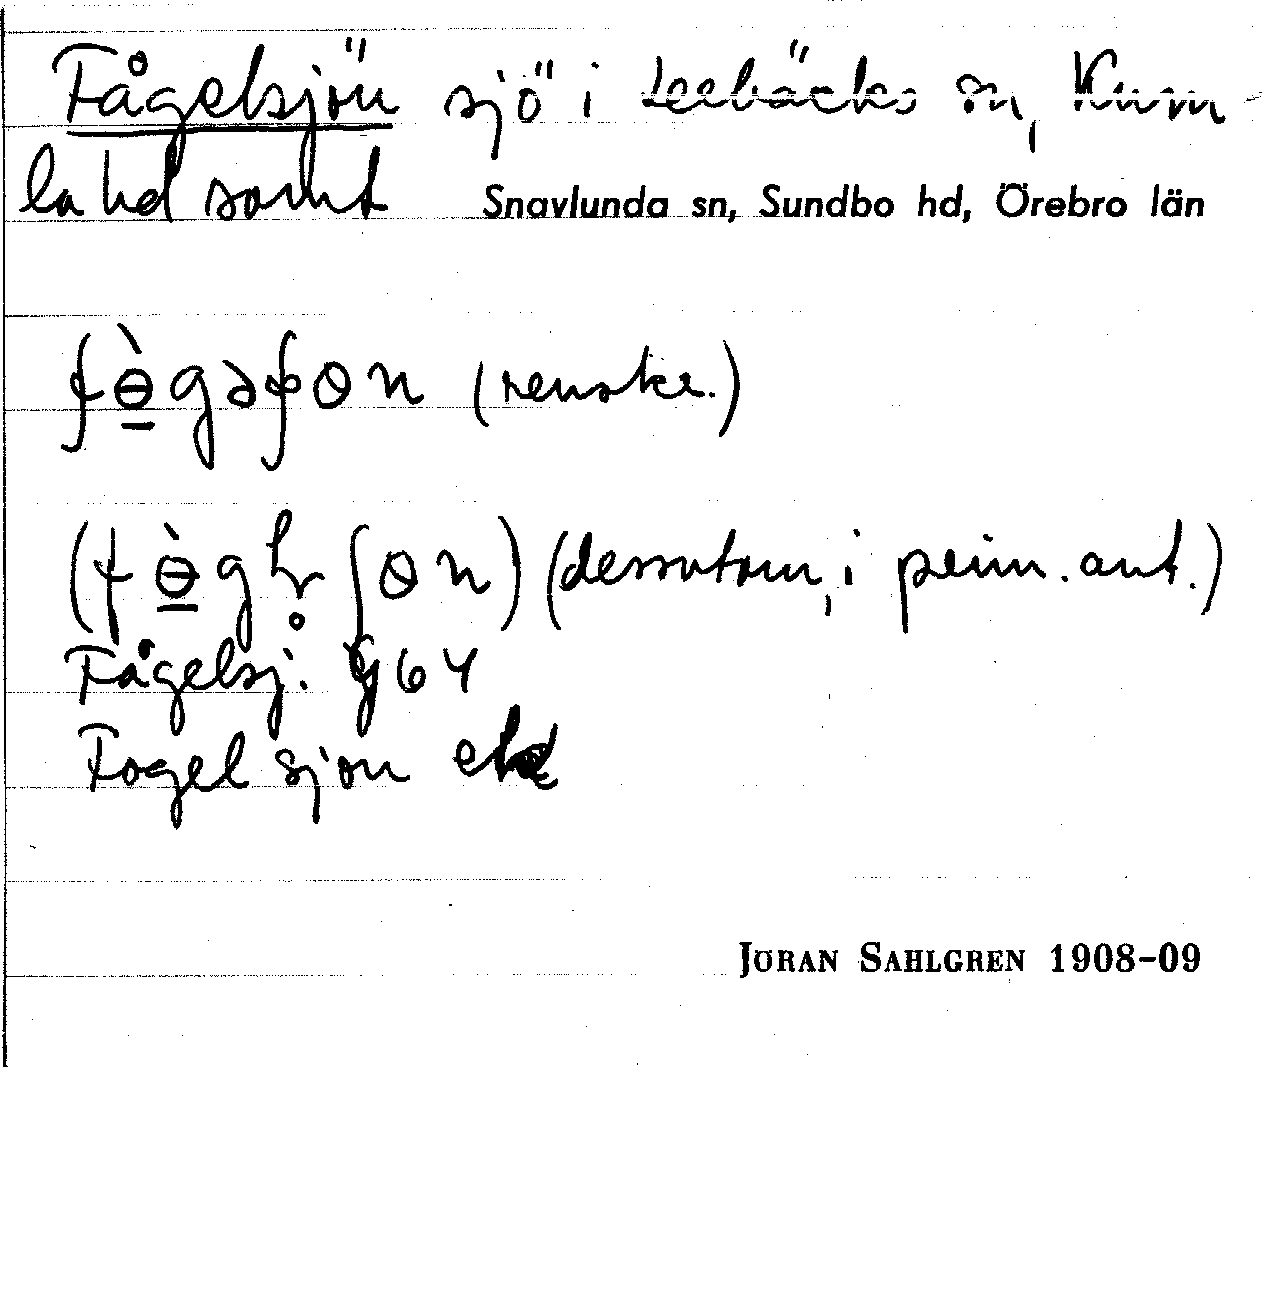 Fågelsjön sjö i Lerbäcks sn, Kum-
la hd samt Snavlunda sn, Sundbo hd, Örebro län
(renskr.)
(dessutom, i prim. ant.)
Fågelsj. G64
Fogelsjon ek
JÖRAN SAHLGREN 1908-09